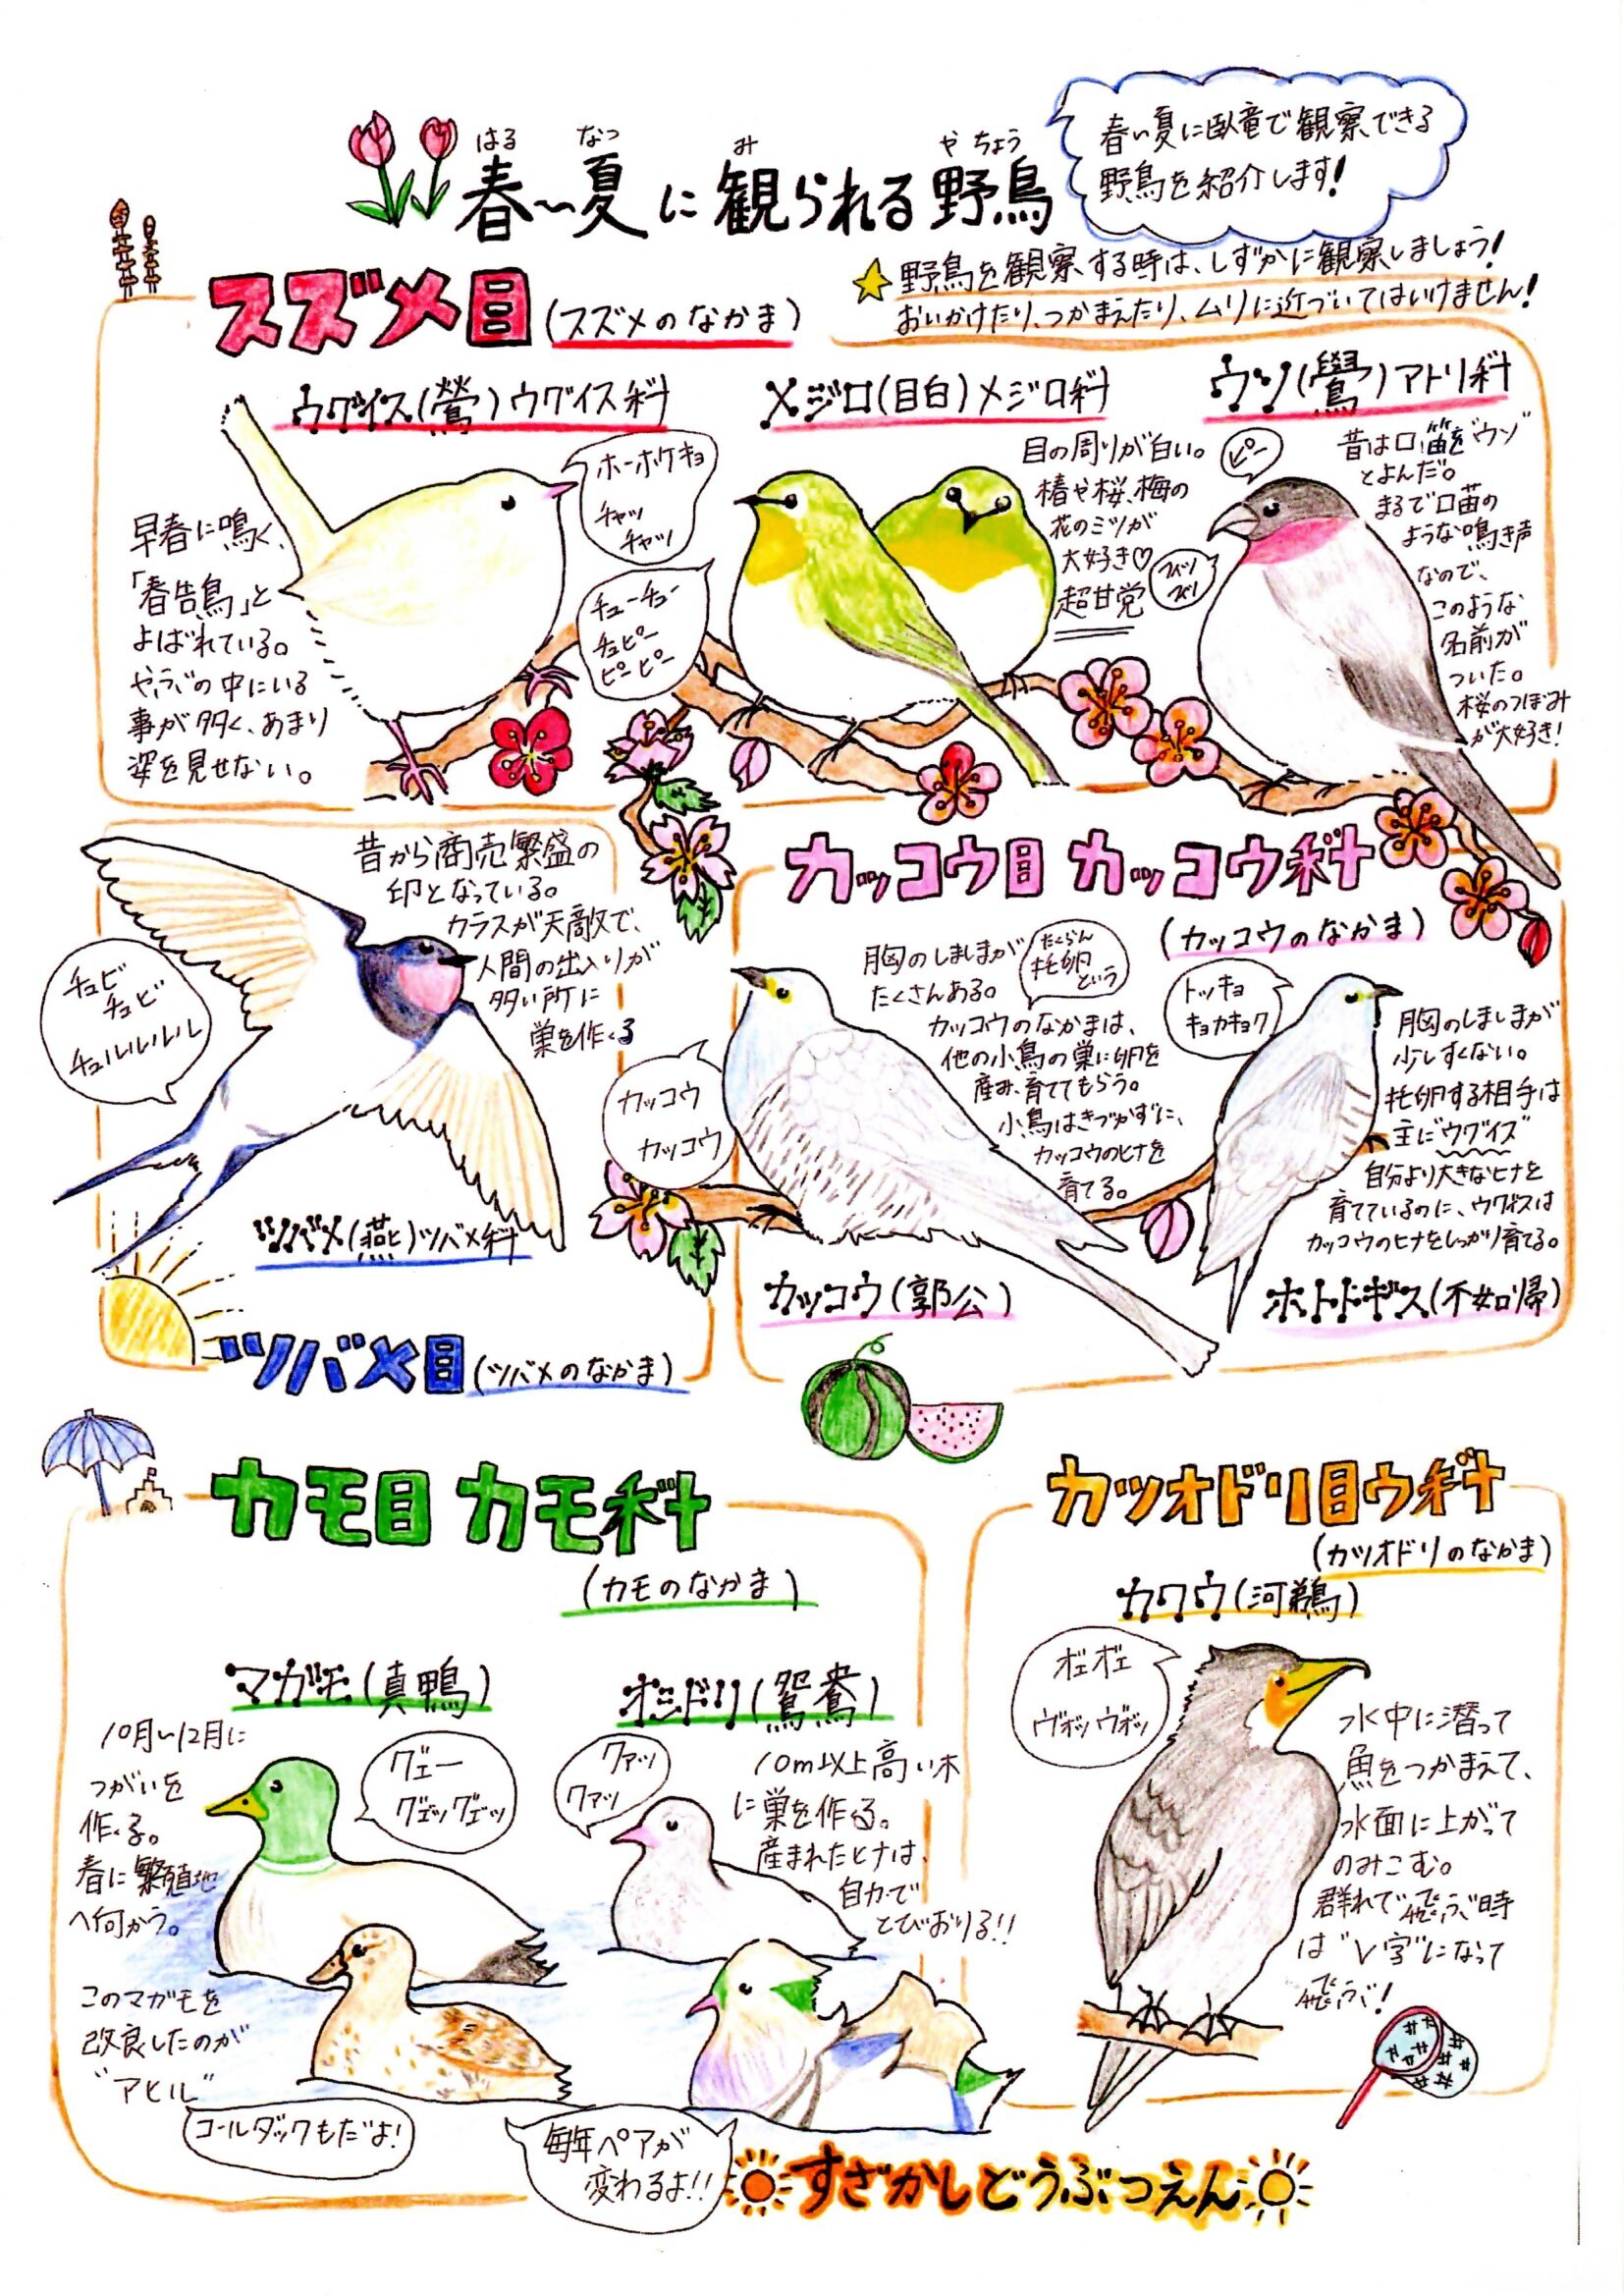 はる なつ み やちょう
春〜夏に観られる野鳥
春〜夏に臥竜で観察できる
野鳥を紹介します!
野鳥を観察する時は、しずかに観察しましょう!
おいかけたり、つかまえたり、ムリに近づいてはいけません!
スズメ目(スズメのなかま)
ウグイス(鶯)ウグイス科
ホーホケキョ
チャッ
チャッ
早春に鳴く、
「春告鳥」と
よばれている。
やぶの中にいる
事が多く、あまり
姿を見せない。
メジロ(目白)メジロ科
目の周りが白い。
椿や桜、梅の
花のミツが
大好き♡
超甘党
チューチュー
チュピー
ピーピー
ウソ(鷽)アトリ科
ピー
昔は口笛を"ウソ"
とよんだ。
まるで口笛の
ような鳴き声
なので、
このような
名前が
ついた。
桜のつぼみ
が大好き!
昔から商売繁盛の
印となっている。
カラスが天敵で、
人間の出入りが
多い所に
巣を作る
チュビ
チュビ
チュルルルル
ツバメ(燕)ツバメ科
ツバメ目(ツバメのなかま)
カッコウ目 カッコウ科
(カッコウのなかま)
胸のしましまが
たくさんある。
たくらん
托卵
という
カッコウのなかまは、
他の小鳥の巣に卵を
産み、育ててもらう。
小鳥はきづかずに、
カッコウのヒナを
育てる。
カッコウ
カッコウ
カッコウ(郭公)
トッキョ
キョカキョク
胸のしましまが
少しすくない。
托卵する相手は
主に"ウグイス"
自分より大きなヒナを
育てているのに、ウグイスは
カッコウのヒナをしっかり育てる。
ホトトギス(不如帰)
カモ目 カモ科
(カモのなかま)
マガモ(真鴨)
10月〜12月に
つがいを
作る。
春に繁殖地
へ向かう。
グェー
グェッグェッ
このマガモを
改良したのが
"アヒル"
コールダックもだよ!
オシドリ(鴛鴦)
クァッ
クァッ
10m以上高い木
に巣を作る。
産まれたヒナは、
自力で
とびおりる!!
毎年ペアが
変わるよ!!
カツオドリ目ウ科
(カツオドリのなかま)
カワウ(河鵜)
オェオェ
ヴォッヴォッ
水中に潜って
魚をつかまえて、
水面に上がって
のみこむ。
群れで飛ぶ時
は"V字"になって
飛ぶ!
すざかしどうぶつえん